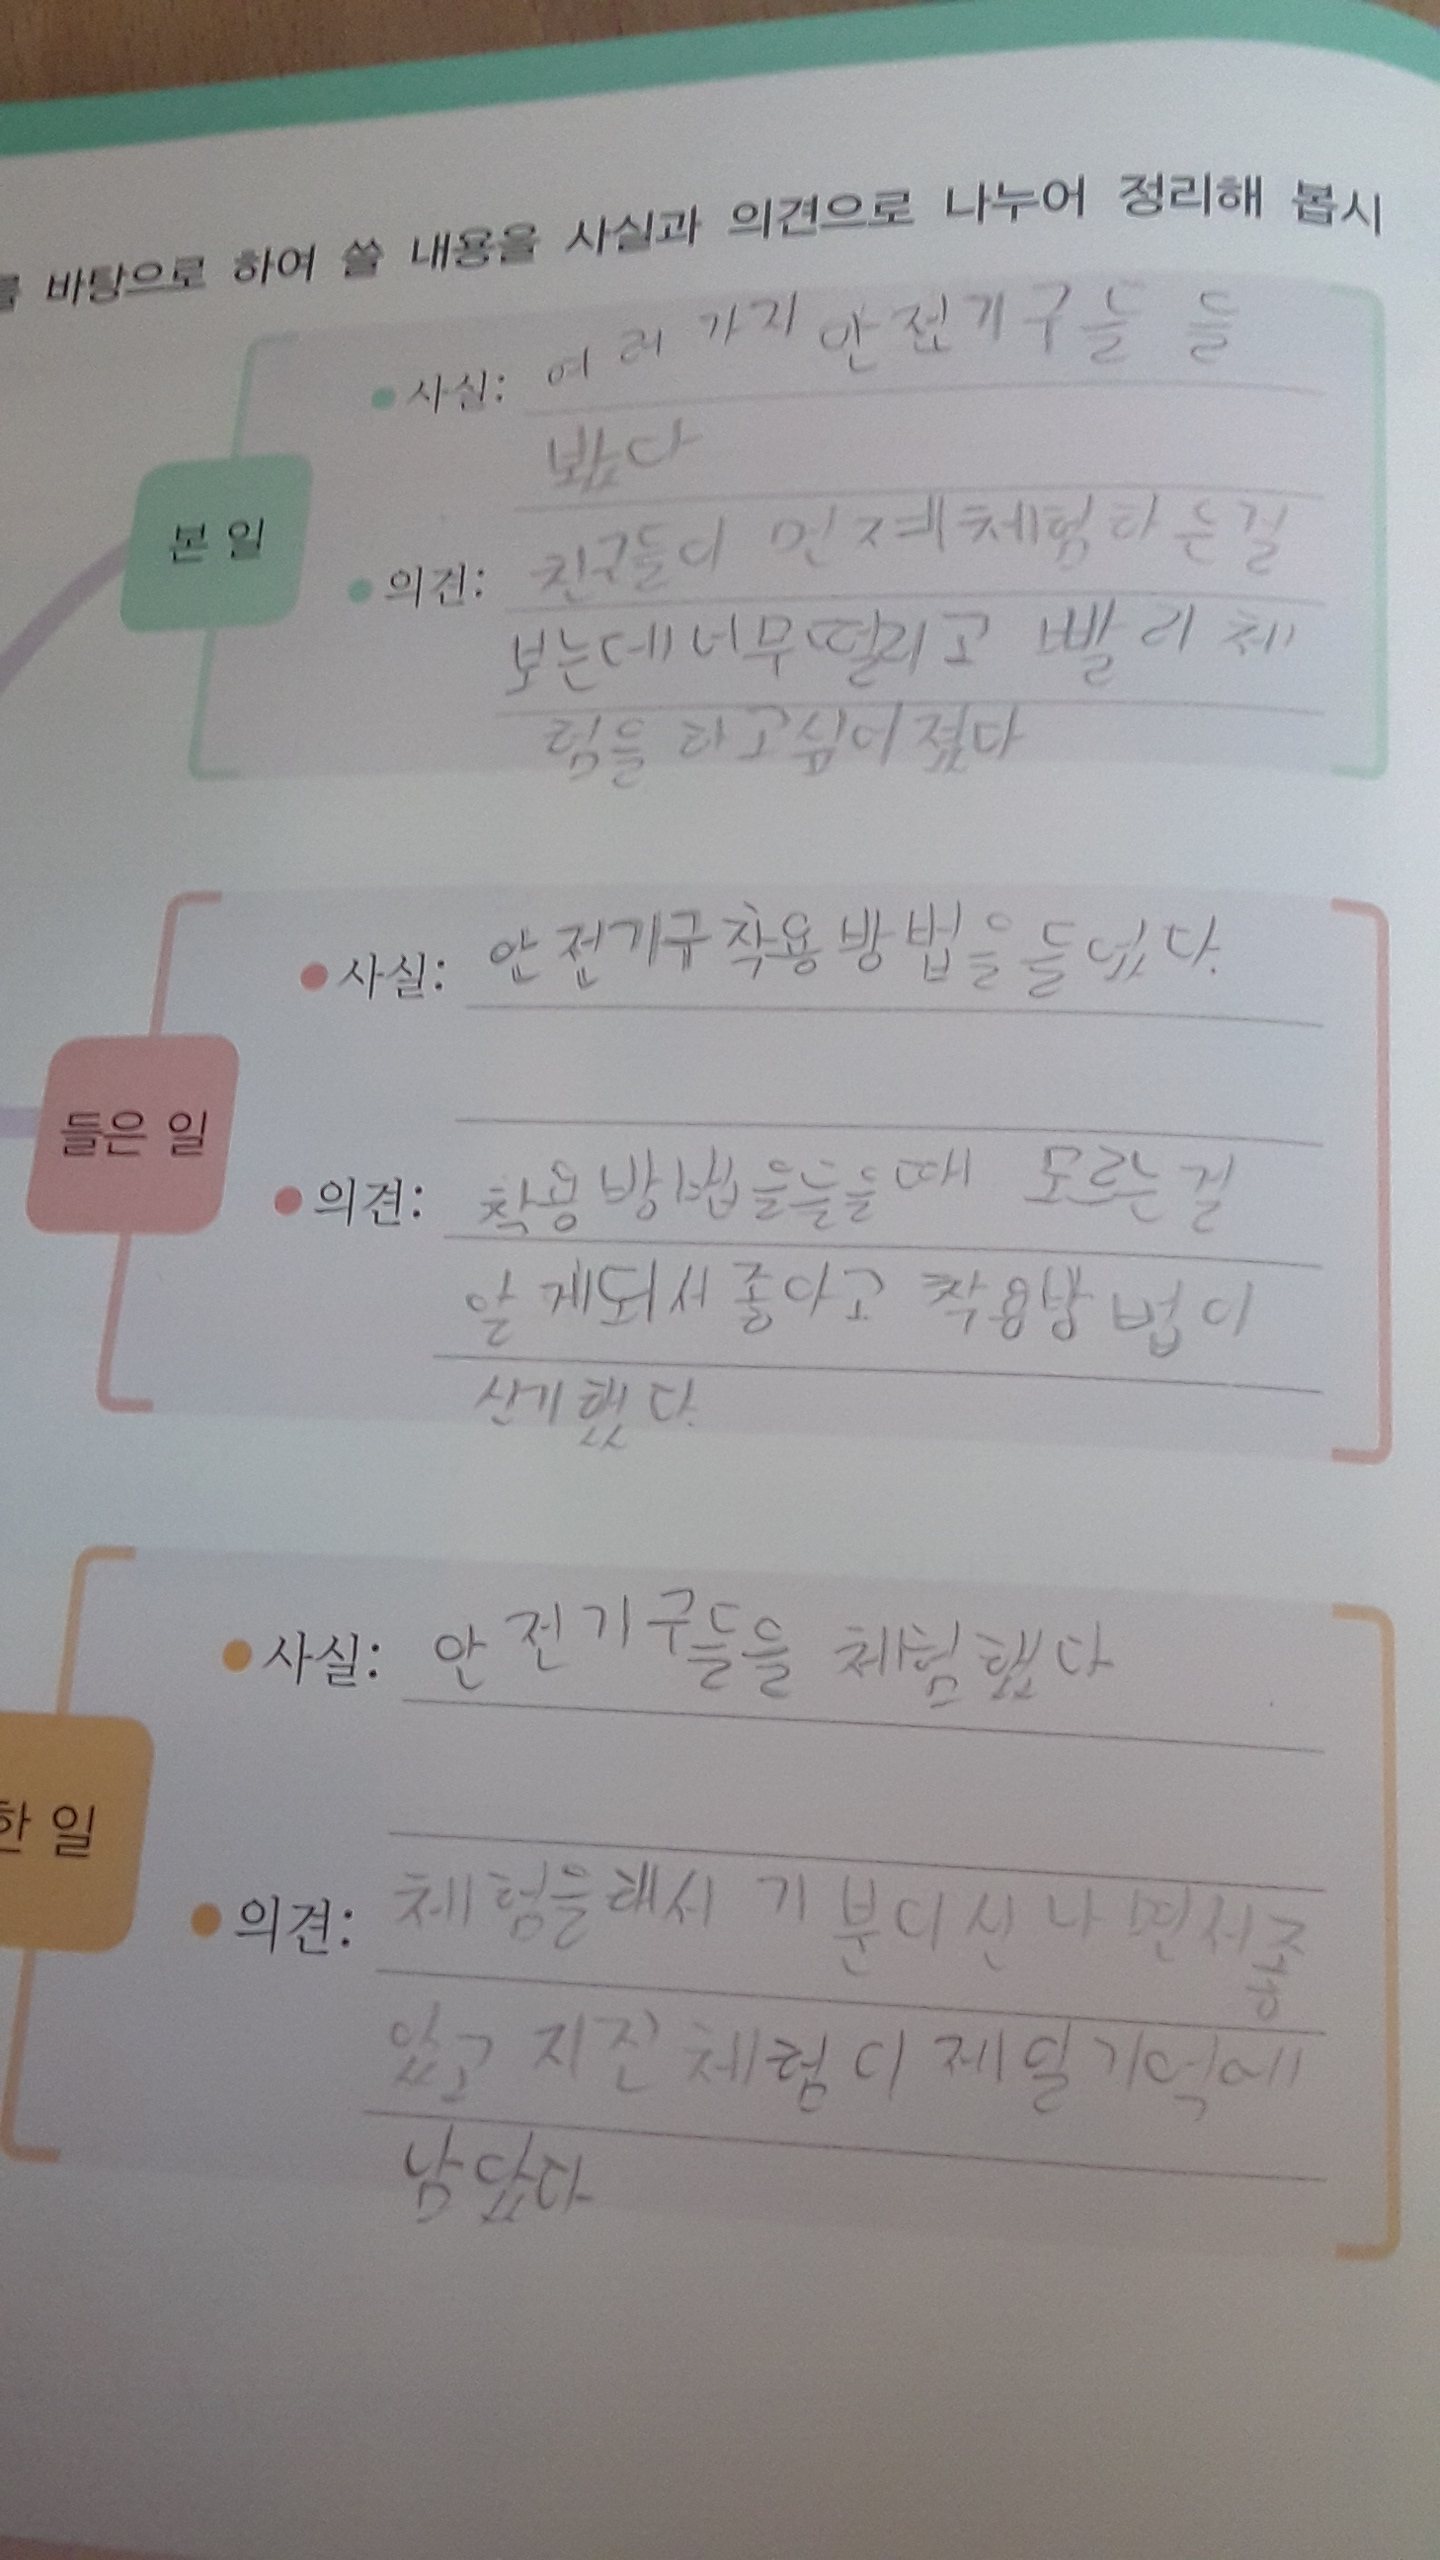 를 바탕으로 하여 쓸 내용을 사실과 의견으로 나누어 정리해 봅시
본 일
• 사실: 여러 가지 안전기구들 을
봤다
• 의견: 친구들이 먼저 체험하는걸
보는데 너무떨리고 빨리 체
험을 하고싶어졌다
들은 일
• 사실: 안전기구착용방법을들었다.
• 의견: 착용방법을들을때 모르는걸
알게되서좋아고 착용방법이
신기했다.
한 일
• 사실: 안전기구들을 체험했다
• 의견: 체험을해서 기분이신나면서좋
았고 지진체험이 제일기억에
남았다